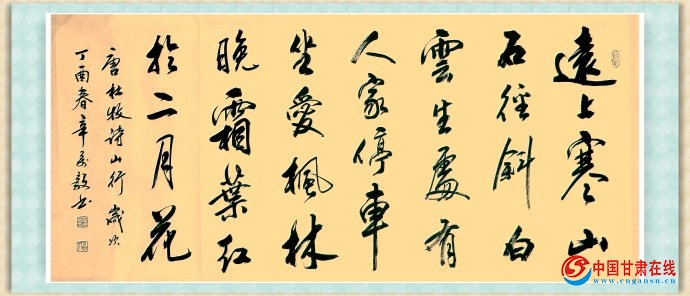 遠上寒山
石徑斜白
雲生處有
人家停車
坐愛楓林
晚霜葉紅
於二月花
唐杜牧诗山行 歲次
丁酉春辛
中国甘肃在线
www.cngansu.cn